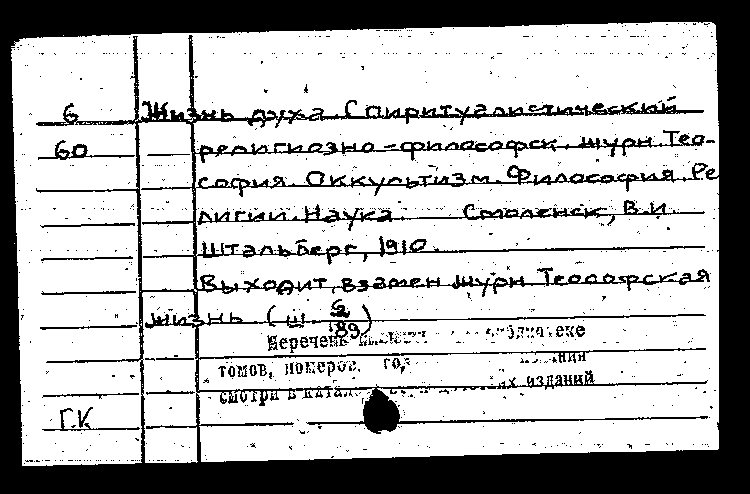 6 Жизнь духа. Спиритуалистический
60 религиозно-философск. журн. Тео-
софия. Оккультизм. Философия. Ре
лигии. Наука. Смоленск, В.И.
Штальберг, 1910.
Выходит взамен журн Теософская
жизнь (ш. 6/189)
Перечень библиотеке
томов, номеров,
смотри в изданий
Г.К